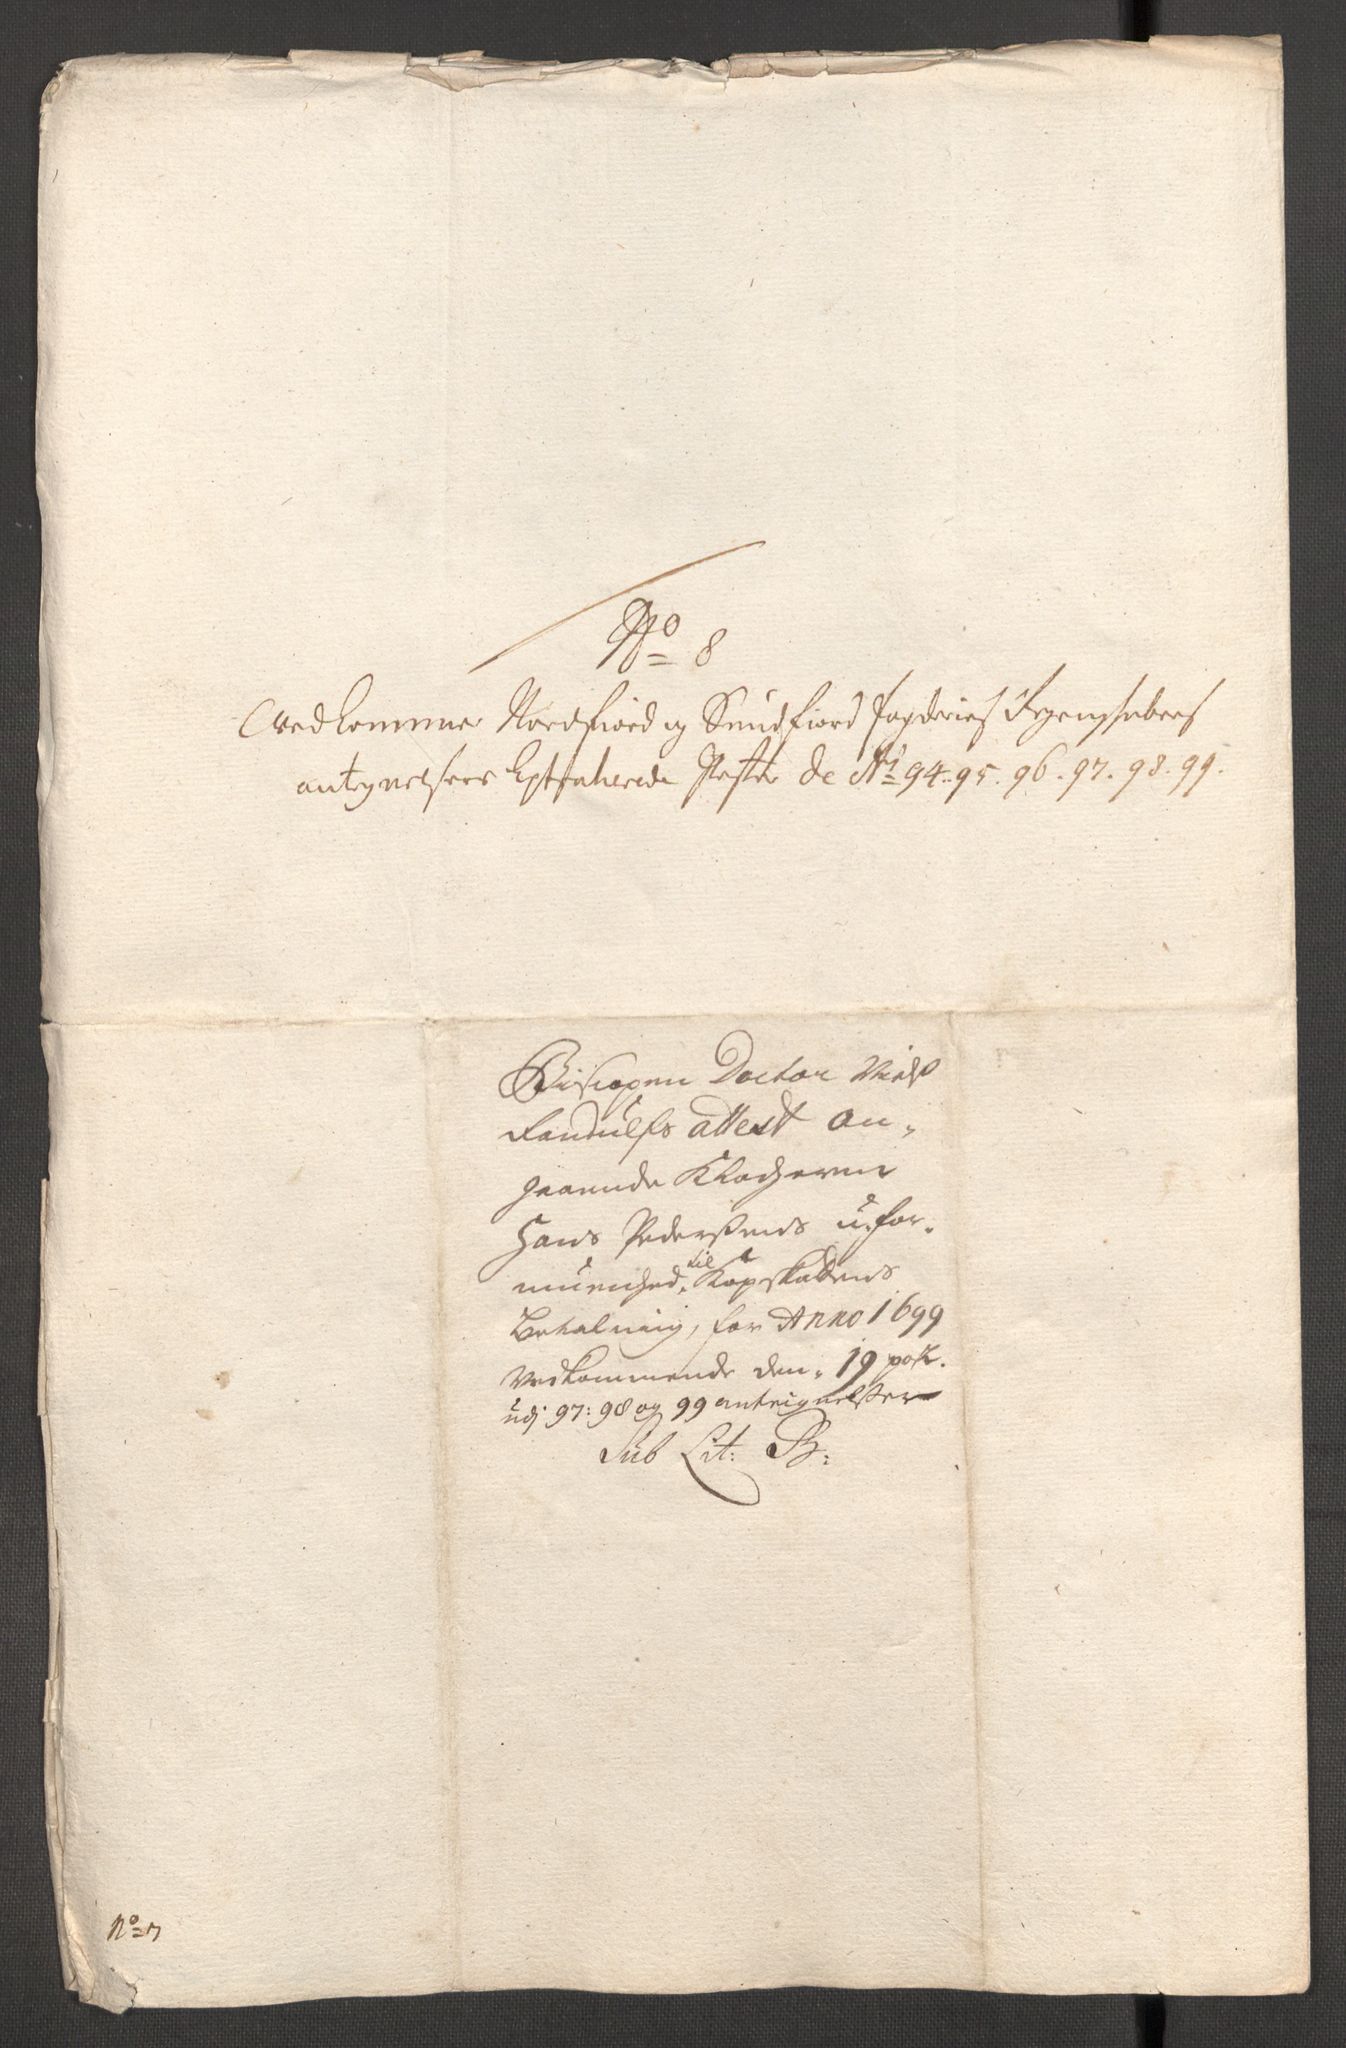 No 8
Vedkommer Nordfiord og Sundfiord fogderies Regenschabers
antegnelsers Extraherede Poster de Ao 94. 95. 96. 97. 98. 99.
Biscopen Doctor Niels
Randulfs attest an-
gaaende Klocheren
Hans Pedersens u-for-
muenhed, til Kopskattens
Betalning, for Anno 1699
Vedkommende den. 19 post.
udj 97: 98 og 99 anteignelser
Sub Lit: B:
No 7